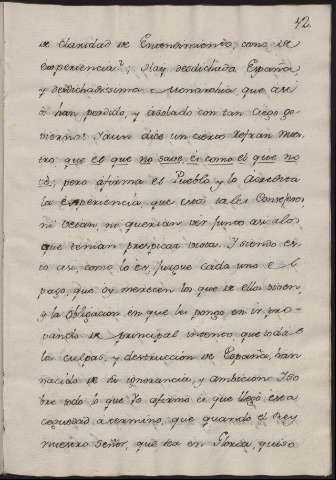 42
de claridad de Entendimiento, como de
experiencia? Hay desdichada España,
y desdichadissima Monarchia que asi
te han perdido, y asolado con tan ciego go-
vierno! Y aun dice un cierto refran nues-
tro que el que no save, es como el que no
vé, pero afirma el Pueblo y lo acredita
la experiencia, que estos tales Consejeros
ni veian ni querian ver junto asi alos
que tenian perspicaz vista. Y siendo es-
to asi, como lo es, juzgue cada uno el
pago, que oy merecen los que se ellos
y la obligacion en que les pongo, en ir pro-
vando de principal intento que todas
las culpas, y destruccion de España, han
nacido de su ignorancia, y ambicion. Y so-
bre todo lo que Yo afirmo es que llegó esta
ceguedad a termino, que quando el Rey
nuestro Señor, que sea en Gloria, quiso